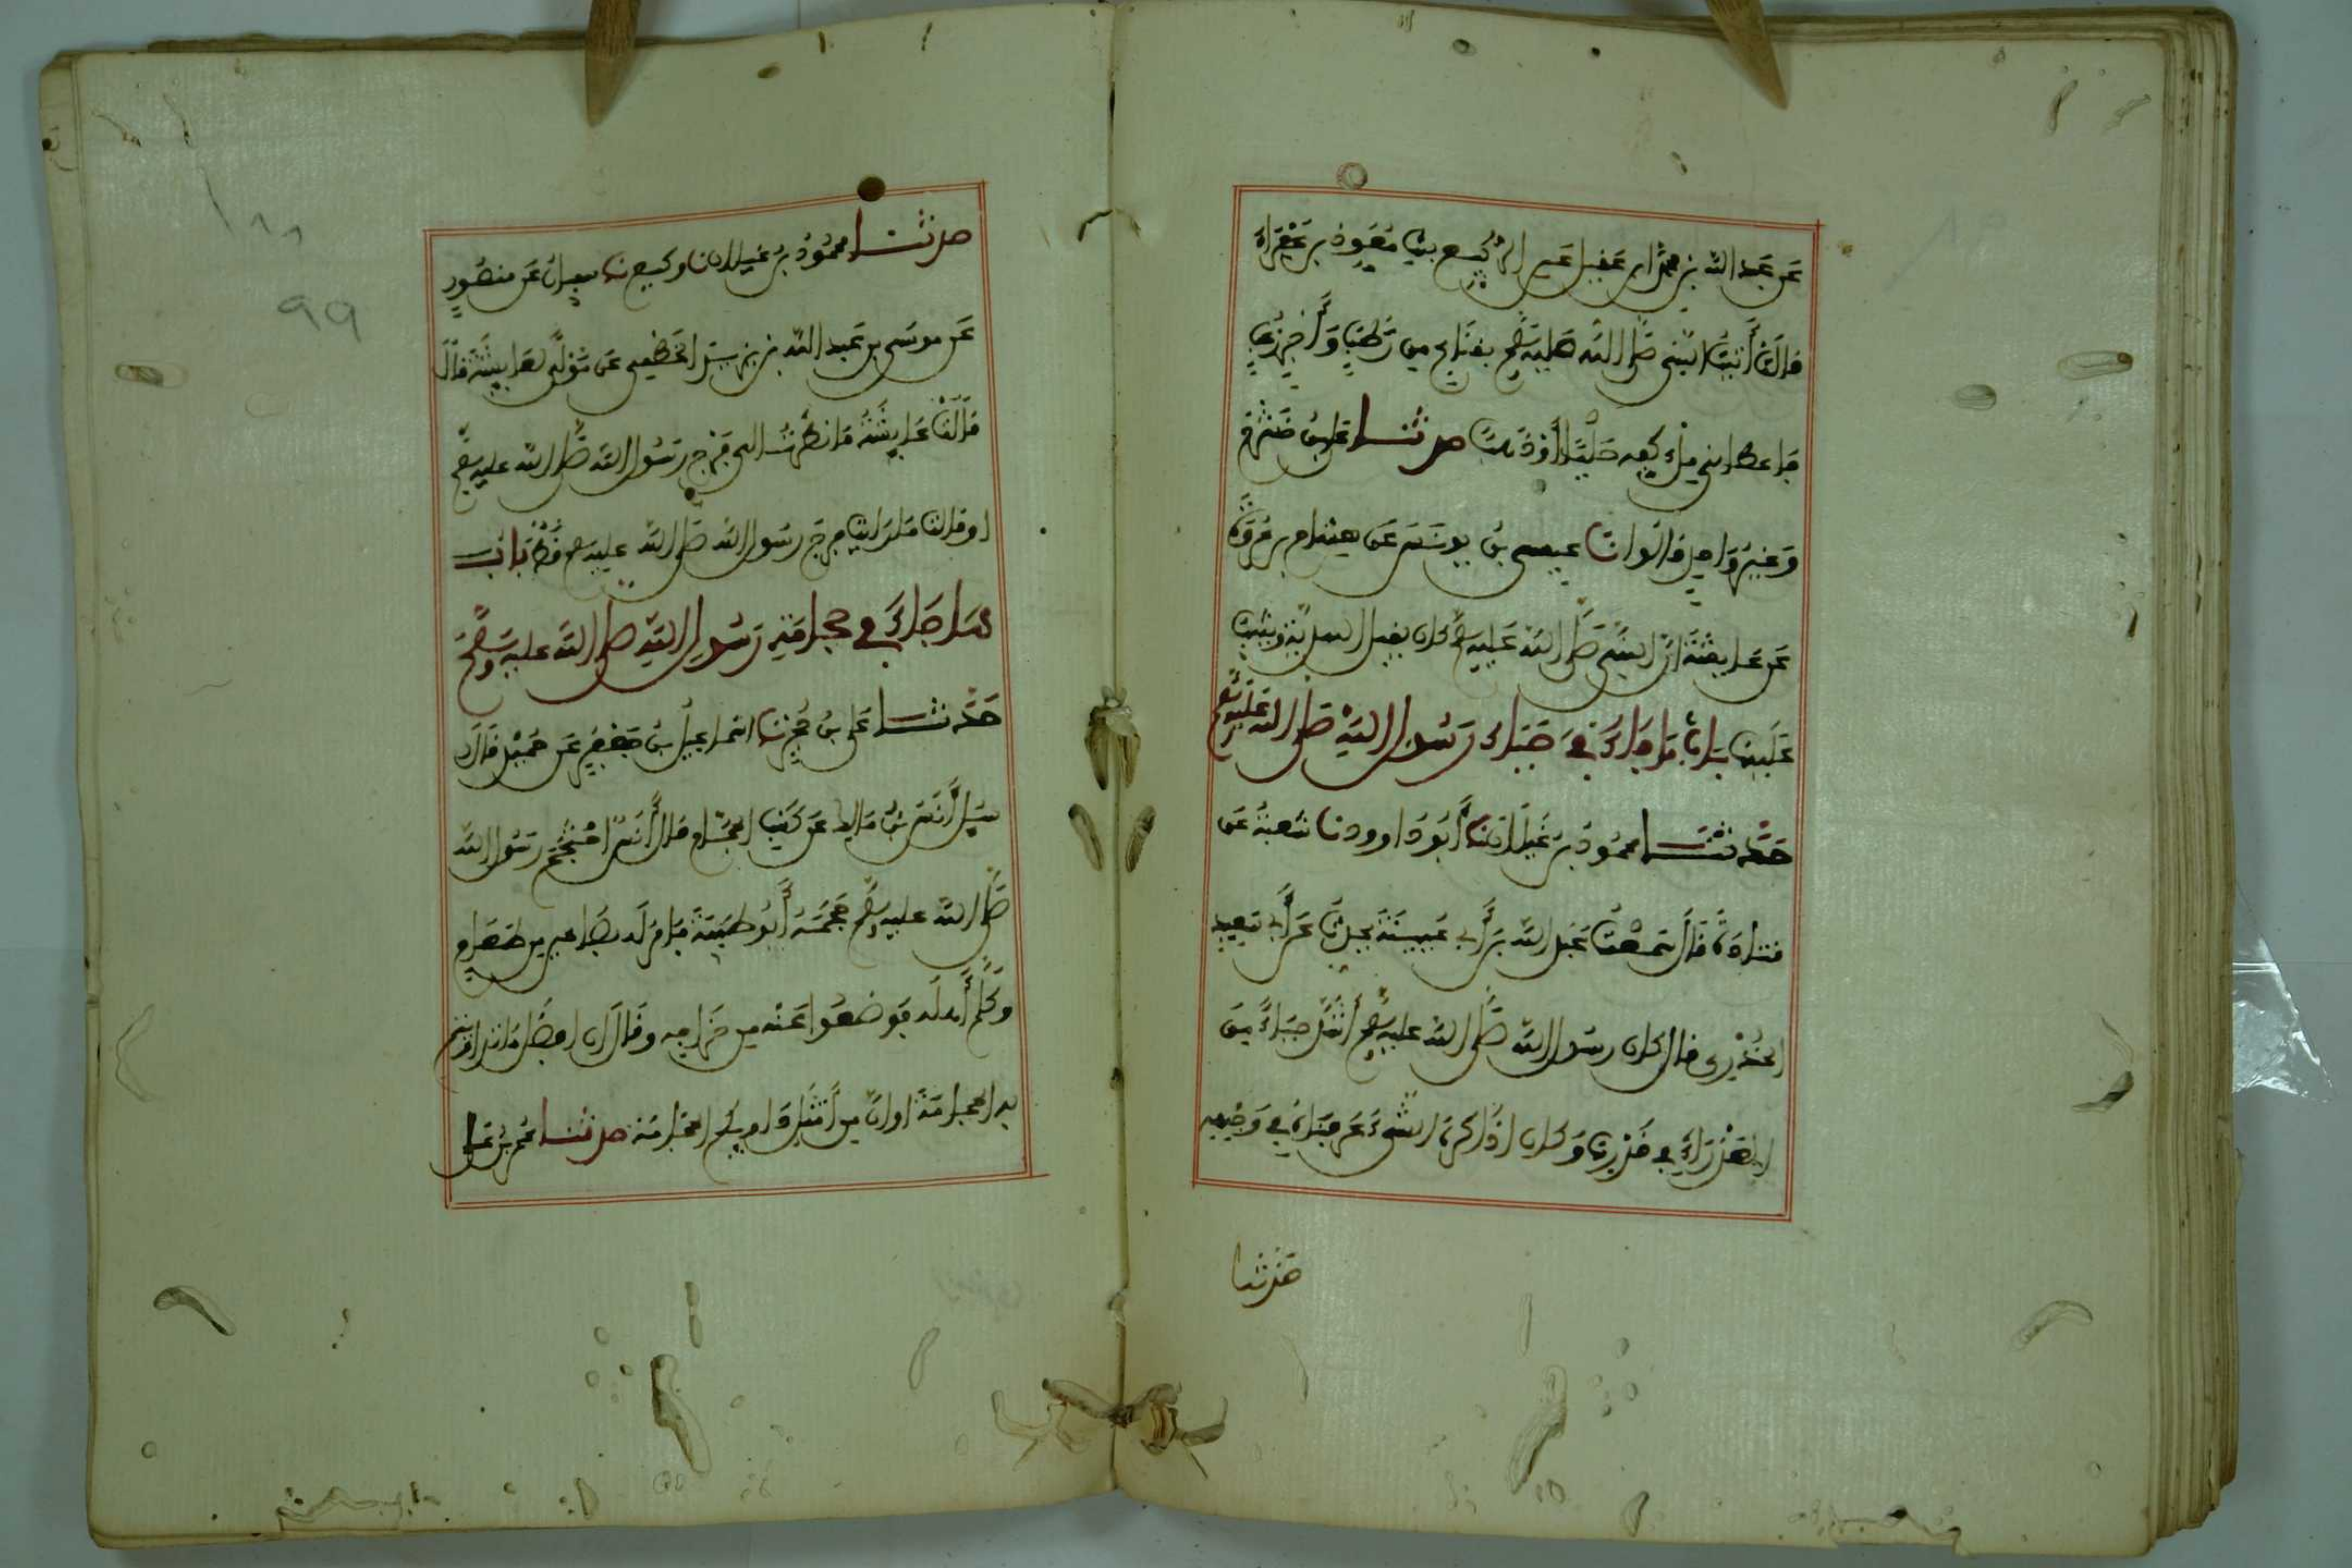 عن عبد الله بن محمد ابن عقيل عن الربيع بنت معوذ بن عفراء
قالت أتيت النبي صلى الله عليه وسلم بقناع من رطب وأجر زغب
فاعطاني ملء كفه حليا أو ذهبا حدثنا علي بن خشرم
وغير واحد قالوا نا عيسى بن يونس عن هشام بن عروة
عن عايشة ان النبي صلى الله عليه وسلم كان يقبل الهدية ويثيب
عليها باب ما جاء في حياء رسول الله صلى الله عليه وسلم
حدثنا محمود بن غيلان نا أبو داوود نا شعبة عن
قتادة قال سمعت عبد الله بن أبي عتبة يحدث عن أبي سعيد
الخدري قال كان رسول الله صلى الله عليه وسلم أشد حياء من
العذراء في خدرها وكان اذا كره الشيء عرفناه في وجهه
حدثنا
حدثنا محمود بن غيلان نا وكيع نا سفيان عن منصور
عن موسى بن عبد الله بن يزيد الخطمي عن مولى لعايشة قال
قالت عايشة ما نظرت الى فرج رسول الله صلى الله عليه وسلم
او قالت ما رايت فرج رسول الله صلى الله عليه وسلم قط باب
ما جاء في حجامة رسول الله صلى الله عليه وسلم
حدثنا علي بن حجر نا اسماعيل بن جعفر عن حميد قال
سيل أنس بن مالك عن كسب الحجام فقال أنس احتجم رسول الله
صلى الله عليه وسلم حجمه أبو طيبة فامر له بصاعين من طعام
وكلم أهله فوضعوا عنه من خراجه وقال ان افضل ما تداويتم
به الحجامة او ان من أمثل دوايكم الحجامة حدثنا عمرو بن علي
١٨٨
٩٩